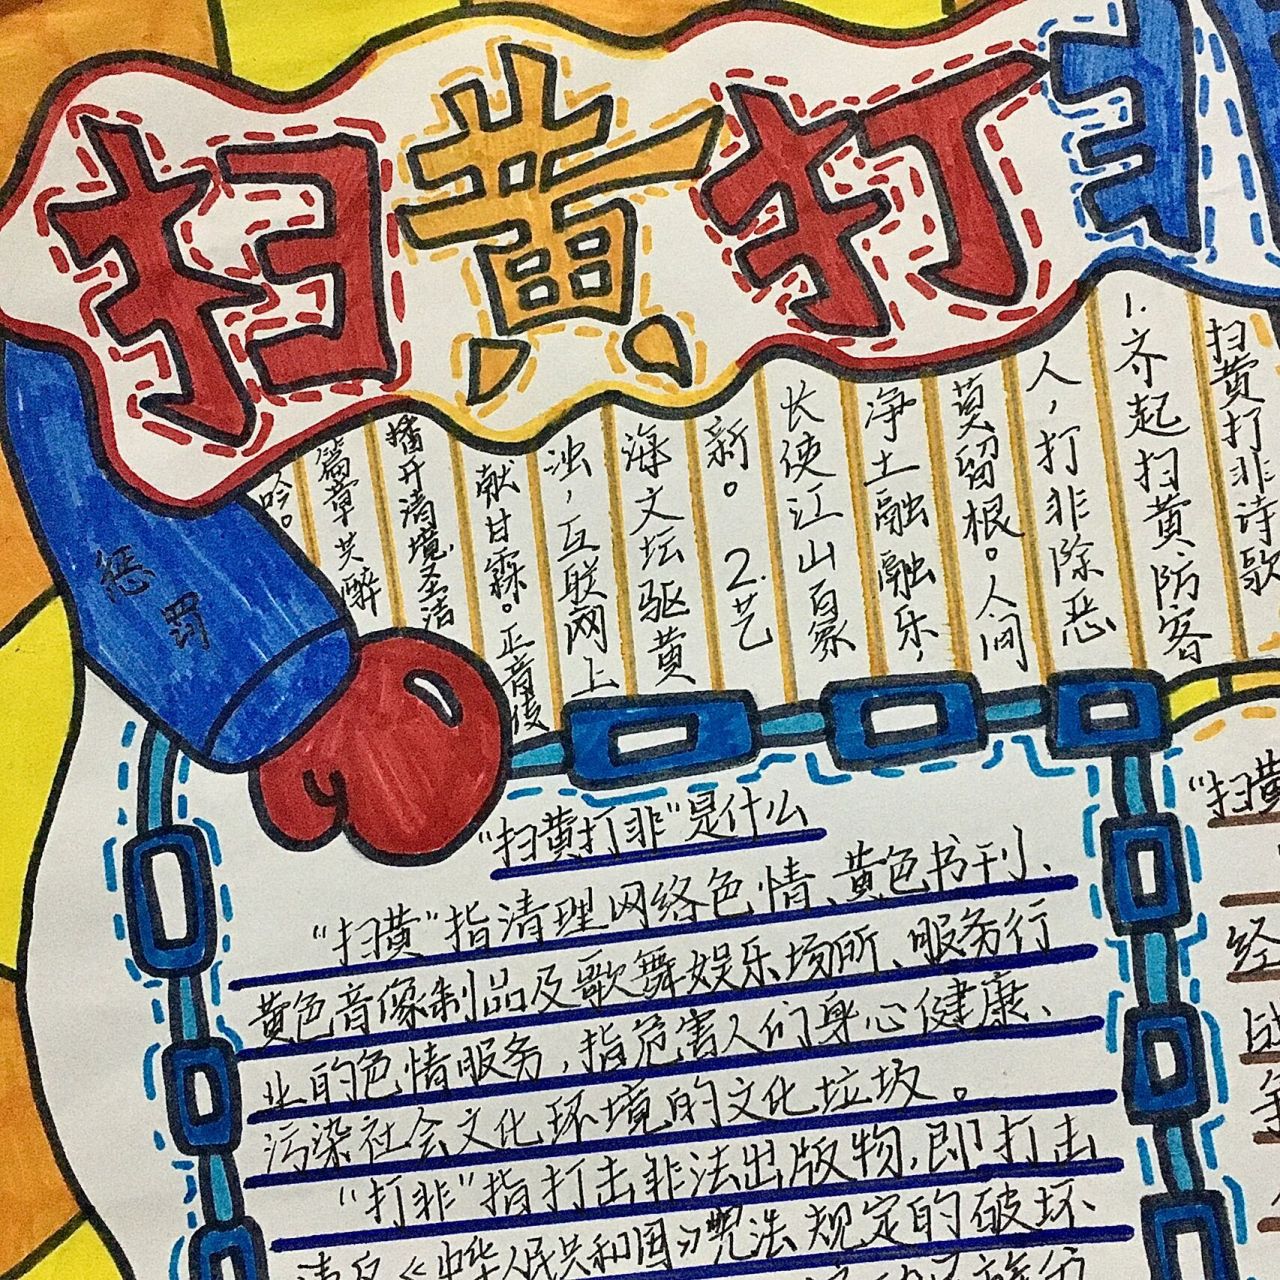 扫黄打非
扫黄打非诗歌
1.齐起扫黄防客
人,打非除恶
莫留根。人间
净土融融乐,
长使江山百家
新。2.艺
海文坛驱黄
浊,互联网上
献甘霖。正音传
播开清境,圣洁
篇章共醉
吟。
惩罚
“扫黄打非”是什么
“扫黄”指清理网络色情、黄色书刊、
黄色音像制品及歌舞娱乐场所、服务行
业的色情服务,指危害人们身心健康、
污染社会文化环境的文化垃圾。
“打非”指打击非法出版物,即打击
违反《中华人民共和国》宪法规定的破坏
“扫黄
经
战